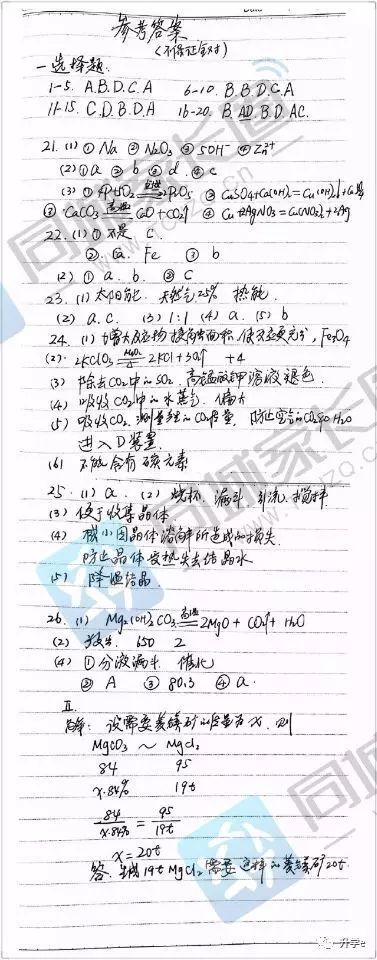 参考答案
(不保证全对)
一.选择题.
1-5. A.B.D.C.A 6-10. B.B.D.C.A
11-15. C.D.B.D.A 16-20. B.AD.B.D.AC.
21. (1) ① Na ② N₂O₃ ③ 5OH⁻ ④ Zn²⁺
(2) ① a ② b ③ d ④ c
(3) ① 4P+5O₂ 点燃 2P₂O₅ ② CuSO₄+Ca(OH)₂=Cu(OH)₂↓+
③ CaCO₃ 高温 CaO+CO₂↑ ④ Cu+2AgNO₃=Cu(NO₃)₂+2Ag
22. (1) ① 不是 C.
② Ca. Fe ③ b
(2) ① a. b. ② C
23. (1) 太阳能. 天然气 25% 热能.
(2) a. c. (3) 1:1 (4) a. (5) b
24. (1) 增大反应物接触面积,使反应更充分, Fe₃O₄
(2). 2KClO₃ MnO₂ △ 2KCl+3O₂↑ +4
(3) 除去CO₂中的SO₂. 高锰酸钾溶液褪色.
(4) 吸收CO₂中的水蒸气. 偏大
(5) 吸收CO₂, 测量生成的CO₂质量. 防止空气中的CO₂和H₂O
进入D装置.
(6) 不能 含有碳元素
25. (1) a. (2) 烧杯. 漏斗. 引流. 搅拌
(3) 便于收集晶体
(4) 减小因晶体溶解所造成的损失.
防止晶体受热失去结晶水
(5) 降温结晶
26. (1) Mg₂(OH)₂CO₃ 高温 2MgO + CO₂↑ + H₂O
(2) 650 2
(4) ① 分液漏斗. 催化
② A ③ 80.3 ④ a.
II.
解: 设需要菱镁矿的质量为x. 则
MgCO₃ ~ MgCl₂
84 95
x·84% 19t
84/x·84% = 95/19t
x = 20t
答: 生成19t MgCl₂需要这样的菱镁矿20t.
同城家长圈
升学e